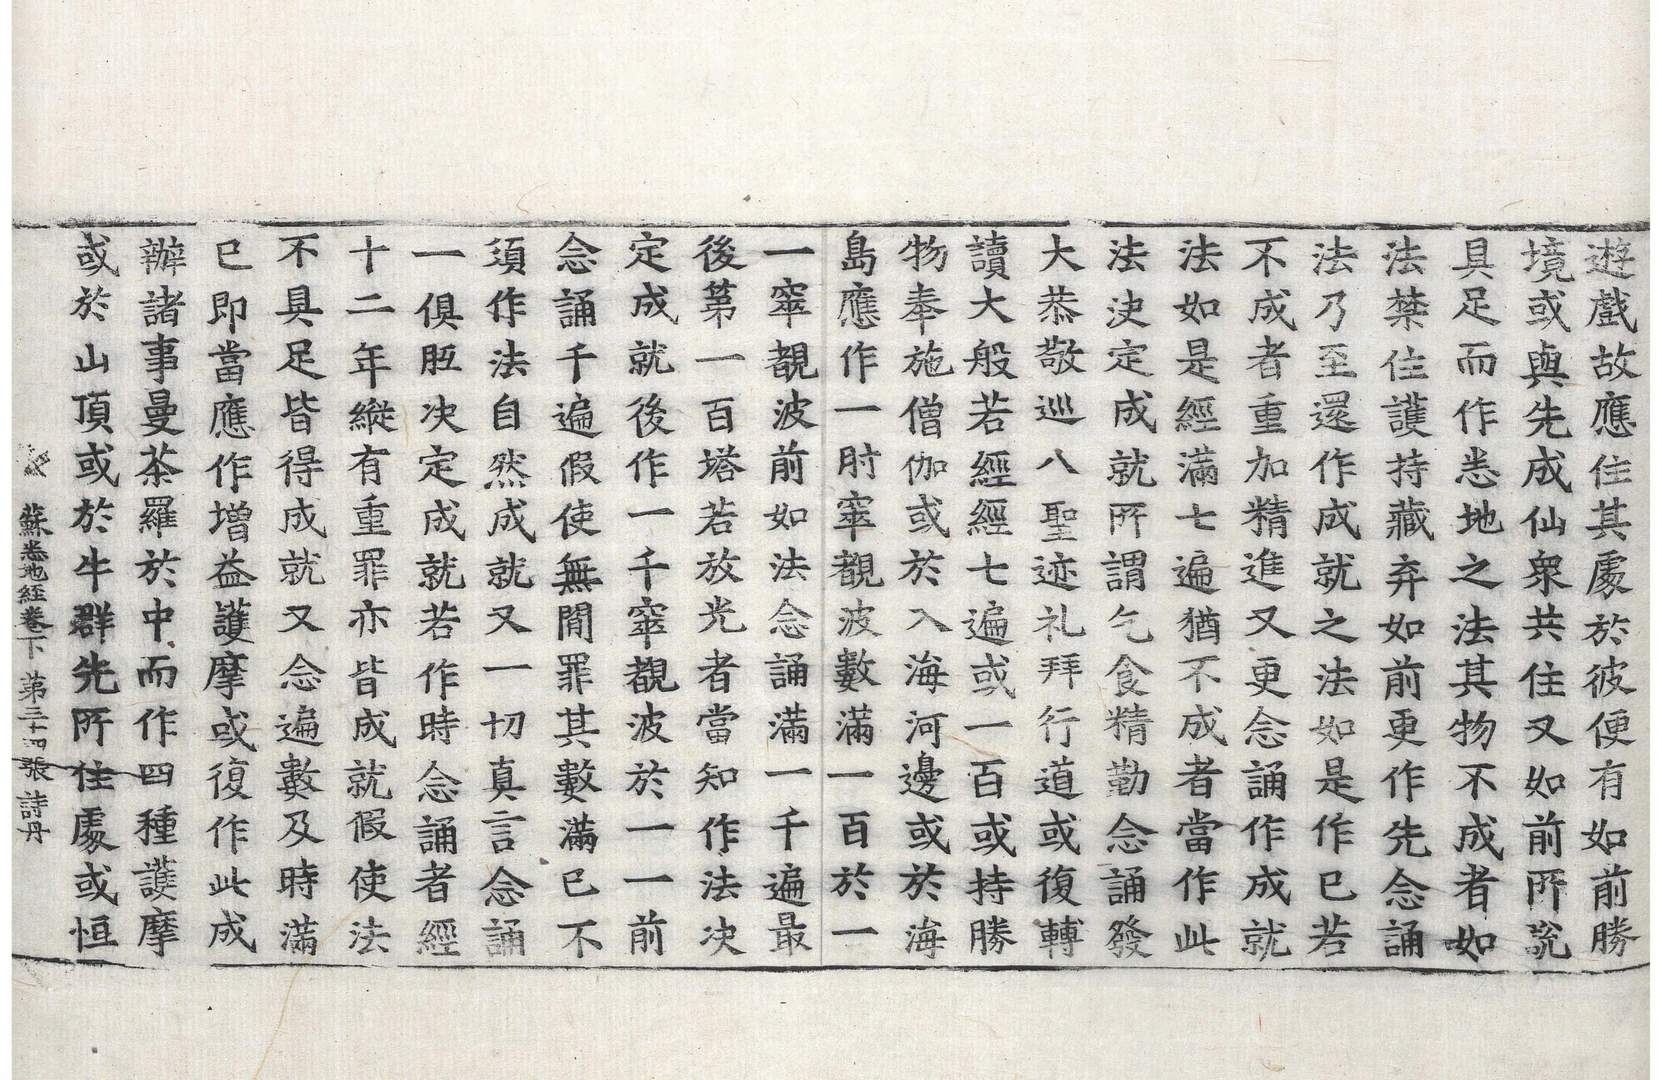 遊戲故應住其處於彼便有如前勝
境或與先成仙衆共住又如前所說
具足而作悉地之法其物不成者如
法禁住護持藏弃如前更作先念誦
法乃至還作成就之法如是作已若
不成者重加精進又更念誦作成就
法如是經滿七遍猶不成者當作此
法決定成就所謂乞食精勤念誦發
大恭敬巡八聖迹礼拜行道或復轉
讀大般若經經七遍或一百或持勝
物奉施僧伽或於入海河邊或於海
島應作一肘窣覩波數滿一百於一
一窣覩波前如法念誦滿一千遍最
後第一百塔若放光者當知作法決
定成就後作一千窣覩波於一一前
念誦千遍假使無間罪其數滿已不
須作法自然成就又一切真言念誦
一俱胝決定成就若作時念誦者經
十二年縱有重罪亦皆成就假使法
不具足皆得成就又念遍數及時滿
已即當應作增益護摩或復作此成
辦諸事曼荼羅於中而作四種護摩
或於山頂或於牛群先所住處或恒
蘇悉地經卷下 第三十四張 詩丹